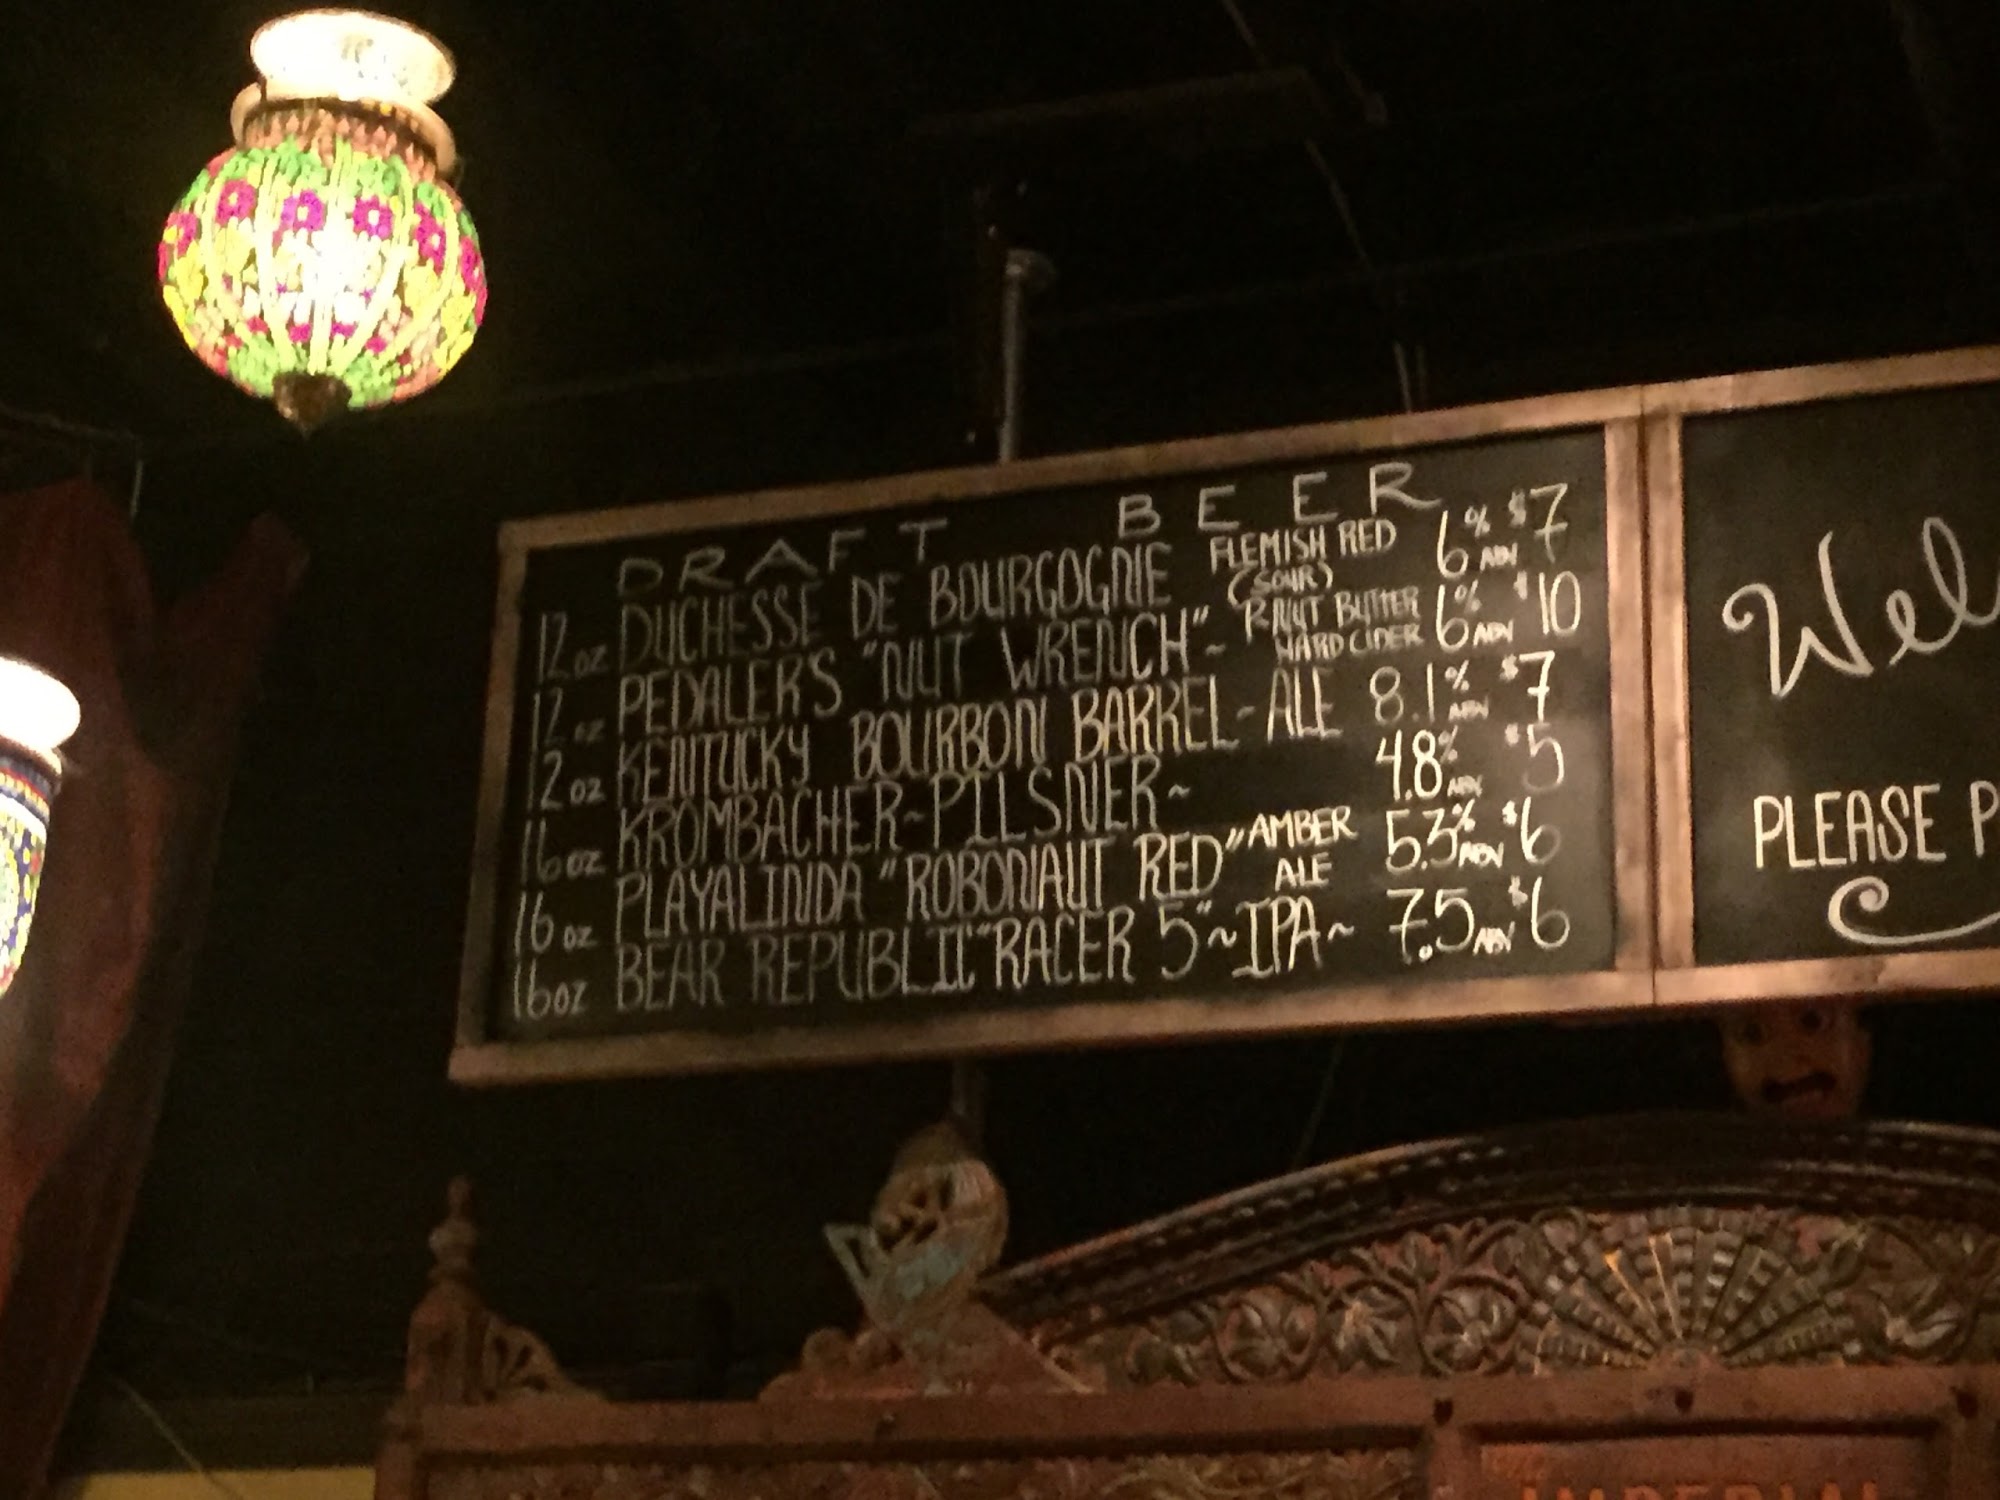 DRAFT BEER
12 oz DUCHESSE DE BOURGOGNE FLEMISH RED (SOUR) 6% ABV $7
12 oz PEDALER'S "NUT WRENCH" ~ P.NUT BUTTER HARD CIDER 6% ABV $10
12 oz KENTUCKY BOURBON BARREL - ALE 8.1% ABV $7
16 oz KROMBACHER ~ PILSNER ~ 4.8% ABV $5
16 oz PLAYALINDA "ROBONAUT RED" AMBER ALE 5.3% ABV $6
16 oz BEAR REPUBLIC "RACER 5" ~ IPA ~ 7.5 ABV $6
Wel
PLEASE P
IMPERIAL